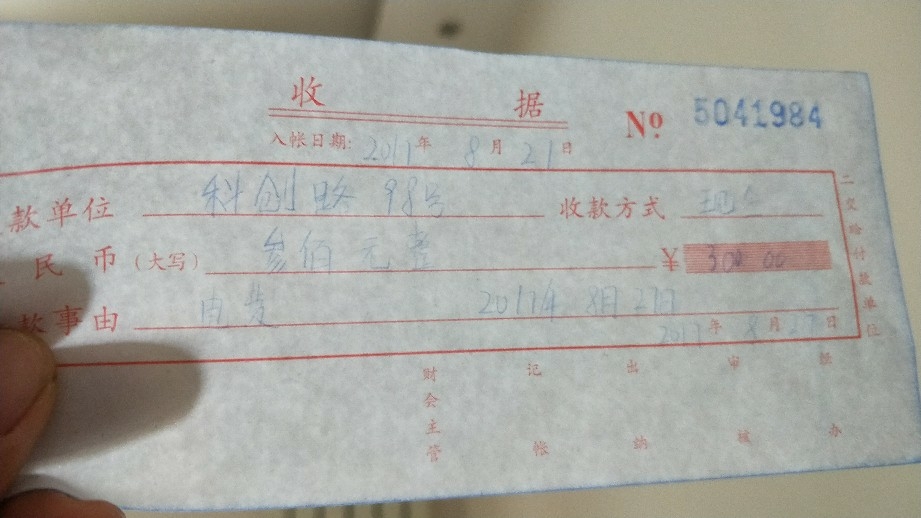 收 据
No 5041984
入帐日期: 2017年 8月 21日
款单位 科创路 98号 收款方式 现金
民币(大写) 叁佰元整 ¥ 300 00
款事由 电费 2017年8月27日
2017年 8月27日
二交给付款单位
财会主管 记帐 出纳 审核 经办